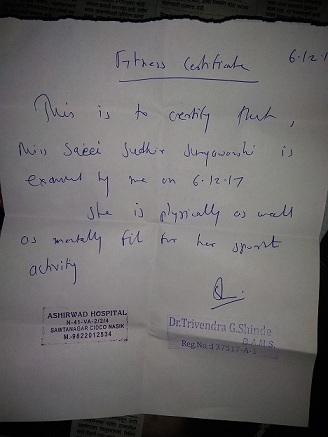 Fitness Certificate
6.12.1
This is to certify that,
Miss Saeei Sudhir Suryawanshi is
examed by me on 6.12.17
She is physically as well
as mentally fit for her sport
activity
ASHIRWAD HOSPITAL
N-41-VA-2/2/4
SAWTANAGAR CIDCO NASIK
M.-9822012834
Dr.Trivendra G.Shinde
B.A.M.S.
Reg.No.I 37517-A-1